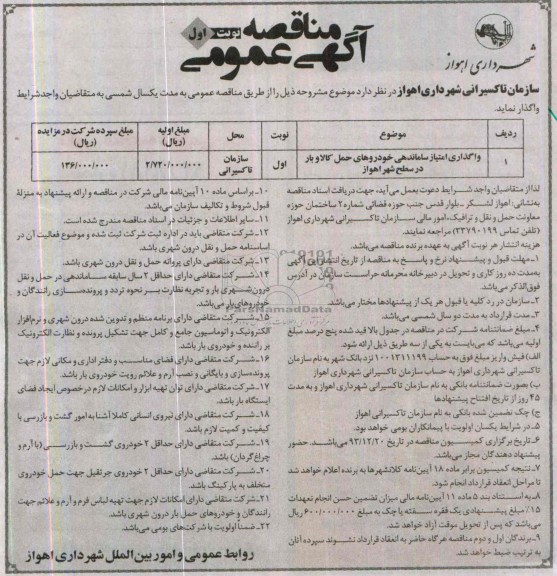 آگهی مناقصه عمومی
نوبت اول
شهرداری اهواز
سازمان تاکسیرانی شهرداری اهواز در نظر دارد موضوع مشروحه ذیل را از طریق مناقصه عمومی به مدت یکسال شمسی به متقاضیان واجد شرایط
واگذار نماید.
ردیف موضوع نوبت محل مبلغ اولیه (ریال) مبلغ سپرده شرکت در مزایده (ریال)
۱ واگذاری امتیاز ساماندهی خودروهای حمل کالا و بار در سطح شهر اهواز اول سازمان تاکسیرانی ۲/۷۲۰/۰۰۰/۰۰۰ ۱۳۶/۰۰۰/۰۰۰
لذا از متقاضیان واجد شرایط دعوت بعمل می‌آید، جهت دریافت اسناد مناقصه
به نشانی: اهواز لشکر - بلوار قدس جنب حوزه قضائی شماره ۲ ساختمان حوزه
معاونت حمل و نقل و ترافیک، امور مالی سازمان تاکسیرانی شهرداری اهواز
(تلفن تماس ۳۳۷۹۰۱۹۹) مراجعه نمایند.
هزینه انتشار هر نوبت آگهی به عهده برنده مناقصه می‌باشد.
۱- مهلت قبول و پیشنهاد نرخ و پاسخ به مناقصه از تاریخ انتشار این آگهی
به مدت ده روز کاری و تحویل در دبیرخانه محرمانه حراست سازمان در آدرس
فوق‌الذکر می‌باشد.
۲- سازمان در رد کلیه یا قبول هر یک از پیشنهادها مختار می‌باشد.
۳- مدت قرارداد به مدت دو سال شمسی می‌باشد.
۴- مبلغ ضمانتنامه شرکت در مناقصه در جدول بالا قید شده پنج درصد مبلغ
اولیه می‌باشد که می‌بایست به یکی از سه طریق ذیل ارائه شود.
الف) فیش واریز مبلغ فوق به حساب ۱۰۰۱۳۱۱۱۹۹ نزد بانک شهر به نام سازمان
تاکسیرانی شهرداری اهواز به حساب سازمان تاکسیرانی شهرداری اهواز
ب) بصورت ضمانتنامه بانکی به نام سازمان تاکسیرانی شهرداری اهواز و به مدت
۴۵ روز از تاریخ افتتاح پیشنهادها
ج) چک تضمین شده بانکی به نام سازمان تاکسیرانی اهواز
۵- در شرایط یکسان اولویت با پیمانکاران بومی خواهد بود.
۶- تاریخ برگزاری کمیسیون مناقصه در تاریخ ۹۳/۱۲/۲۰ می‌باشد. حضور
پیشنهاد دهندگان مجاز می‌باشد.
۷- نتیجه کمیسیون برابر ماده ۱۸ آیین‌نامه کلانشهرها به برنده اعلام خواهد شد
تا مراحل انعقاد قرارداد انجام شود.
۸- به استناد بند ۵ ماده ۱۱ آیین‌نامه مالی میزان تضمین حسن انجام تعهدات
۱۵٪ مبلغ پیشنهادی یک فقره سفته یا چک به مبلغ ۶۰۰/۰۰۰/۰۰۰ ریال
می‌باشد که پس از تحویل موقت آزاد خواهد شد.
۹- برندگان اول و دوم مناقصه هرگاه حاضر به انعقاد قرارداد نشوند سپرده آنان
به ترتیب ضبط خواهد شد.
۱۰- براساس ماده ۱۰ آیین‌نامه مالی شرکت در مناقصه و ارائه پیشنهاد به منزله
قبول شروط و تکالیف سازمان می‌باشد.
۱۱- سایر اطلاعات و جزئیات در اسناد مناقصه مندرج شده است.
۱۲- شرکت متقاضی باید در اداره ثبت شرکت ثبت شده و موضوع فعالیت آن در
اساسنامه حمل و نقل درون شهری باشد.
۱۳- شرکت متقاضی دارای پروانه حمل و نقل درون شهری باشد.
۱۴- شرکت متقاضی دارای حداقل ۲ سال سابقه ساماندهی در حمل و نقل
درون شهری بار و تجربه نظارت بر نحوه تردد و پرونده‌سازی رانندگان و
خودروهای بار می‌باشد.
۱۵- شرکت متقاضی دارای برنامه منظم و تدوین شده درون شهری و نرم‌افزار
الکترونیک و اتوماسیون جامع و کامل جهت تشکیل پرونده و نظارت الکترونیک
بر راننده و خودروی بار باشد.
۱۶- شرکت متقاضی دارای فضای مناسب و دفتر اداری و مکانی لازم جهت
پرونده‌سازی و بایگانی و نصب آرم و علائم رویت خودروی بار باشد.
۱۷- شرکت متقاضی دارای توان تهیه ابزار و امکانات لازم درخصوص ایجاد فضای
ایستگاه بار باشد.
۱۸- شرکت متقاضی دارای نیروی انسانی کاملا آشنا به امور گشت و بازرسی با
کیفیت و کمیت لازم باشد.
۱۹- شرکت متقاضی دارای حداقل ۲ خودروی گشت و بازرسی (با آرم و
چراغ گردان) باشد.
۲۰- شرکت متقاضی دارای حداقل ۲ خودروی جرثقیل جهت حمل خودروی
متخلف به پارکینگ باشد.
۲۱- شرکت متقاضی دارای امکانات لازم جهت تهیه لباس فرم و آرم و علائم جهت
رانندگان و خودروهای حمل بار درون شهری باشد.
۲۲- ضمناً اولویت با شرکت‌های بومی می‌باشد.
روابط عمومی و امور بین الملل شهرداری اهواز
ParsNamadData